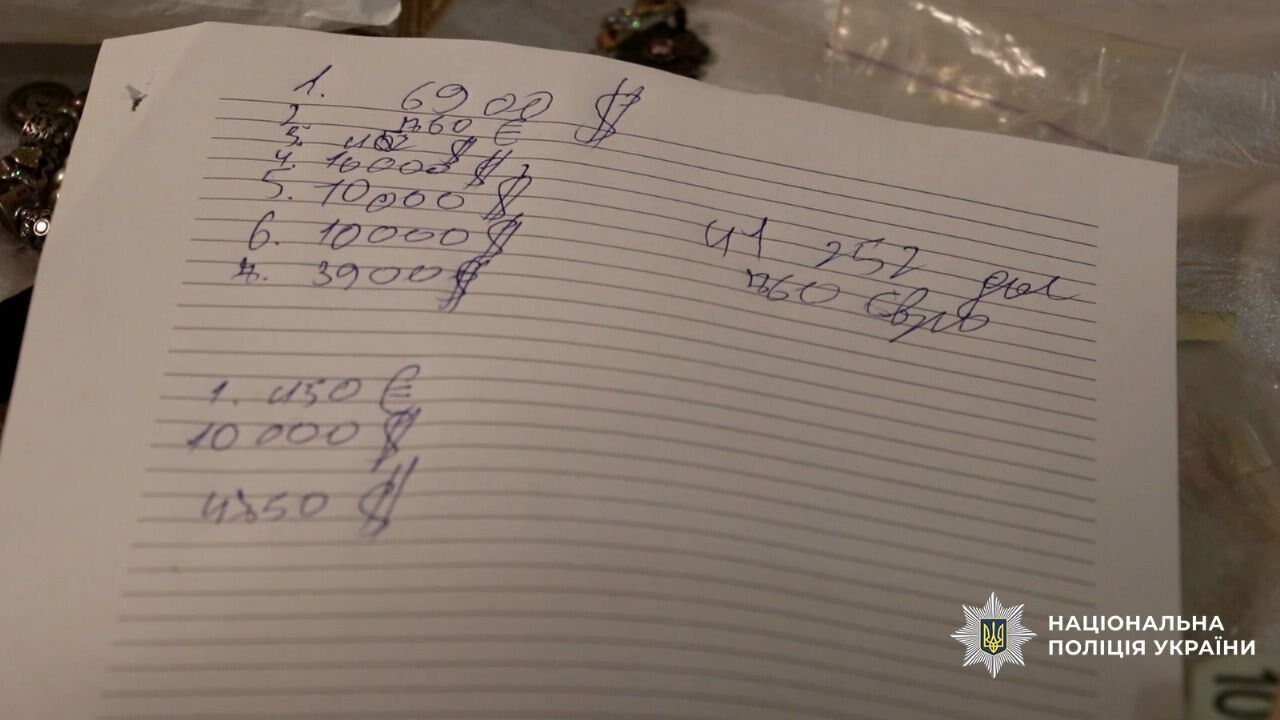 1. 6900 $
2. 760 €
3. 452 $
4. 10000 $
5. 10000 $
6. 10000 $
7. 3900 $
41 252 дол
760 євро
1. 450 €
10 000 $
4350 $
НАЦІОНАЛЬНА
ПОЛІЦІЯ УКРАЇНИ
10